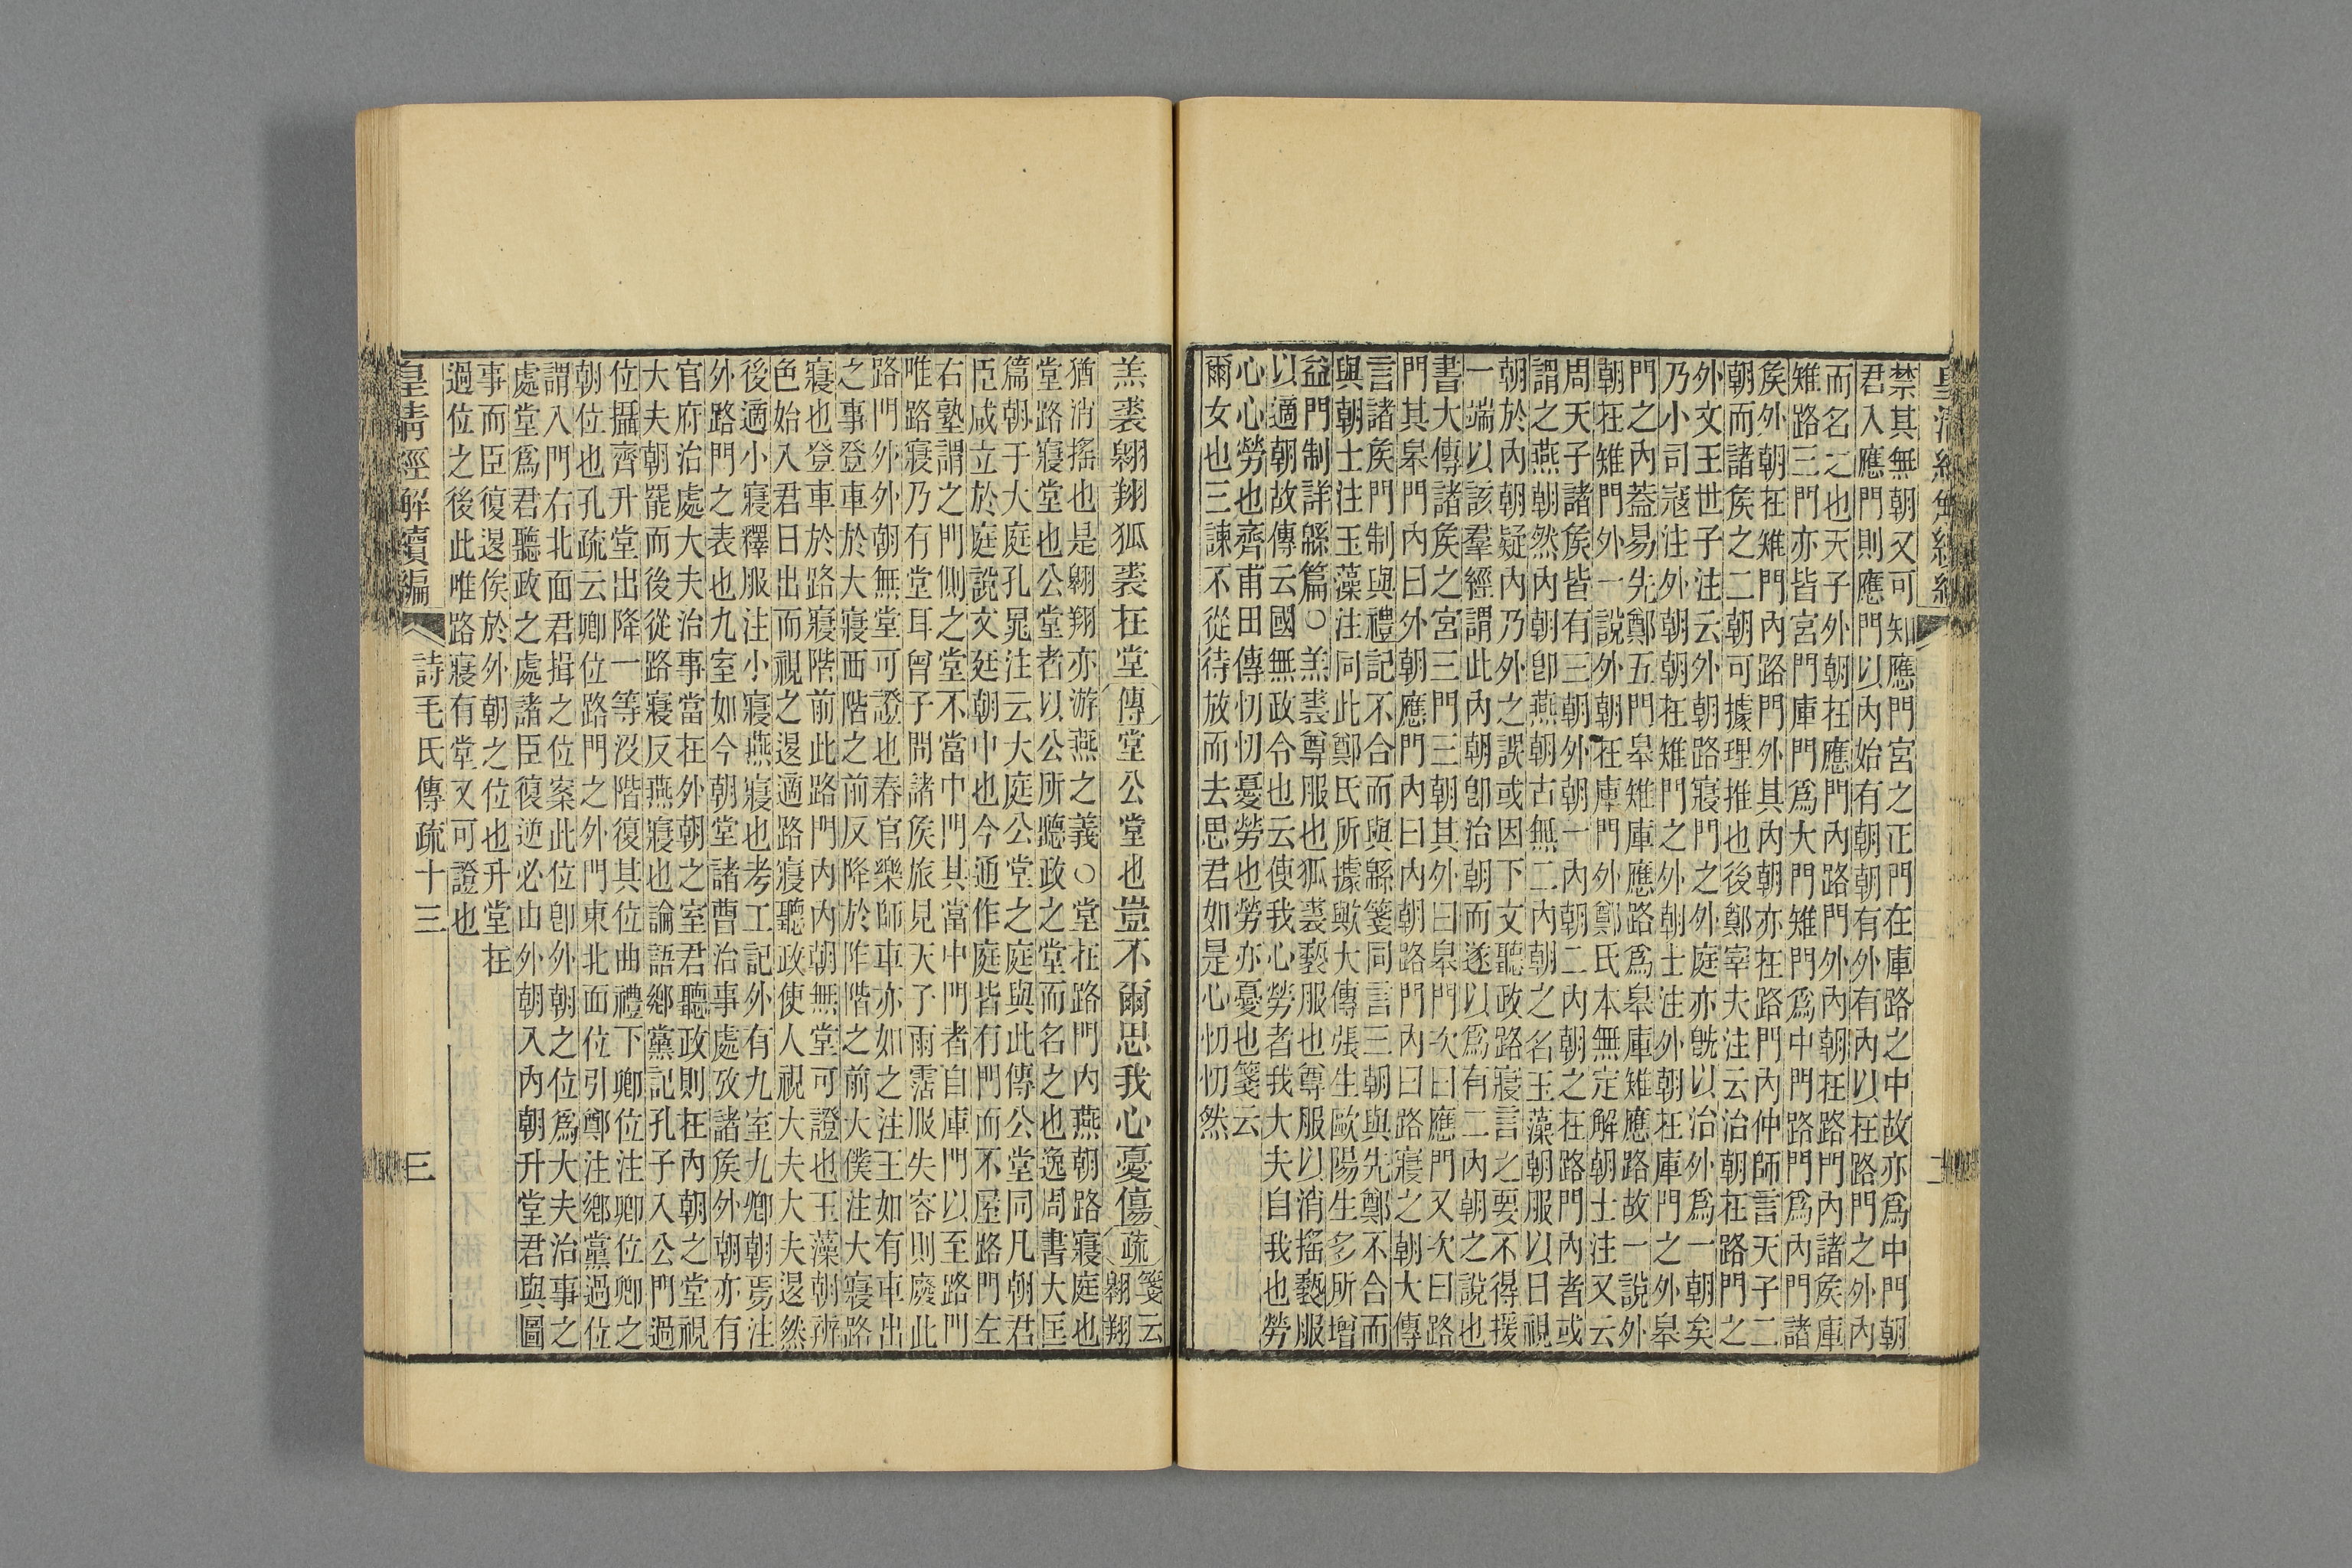 禁其無朝又可知應門宮之正門在庫路之中故亦爲中門朝
君入應門則應門以內始有朝朝有外有內以在路門之外內
而名之也天子外朝在應門內路門外內朝在路門內諸矦庫
雉路三門亦皆宮門庫門爲大門雉門爲中門路門爲內門諸
矦外朝在雉門內路門外其內朝亦在路門內仲師言天子二
朝而諸矦之二朝可據理推也後鄭宰夫注云治朝在路門之
外文王世子注云外朝路寢門之外庭亦旣以治外爲一朝矣
乃小司寇注外朝朝在雉門之外朝士注外朝在庫門之外皋
門之內蓋易先鄭五門皋雉庫應路爲皋庫雉應路故一說外
朝在雉門外一說外朝在庫門外鄭氏本無定解朝士注又云
周天子諸矦皆有三朝外朝一內朝二內朝之在路門內者或
謂之燕朝然內朝卽燕朝古無二內朝之名玉藻朝服以日視
朝於內朝疑內乃外之誤或因下文聽政路寢言之要不得援
一端以該羣經謂此內朝卽治朝而遂以爲有二內朝之說也
書大傳諸矦之宮三門三朝其外曰皋門次曰應門又次曰路
門其皋門內曰外朝應門內曰內朝路門內曰路寢之朝大傳
言諸矦門制與禮記不合而與緜箋同言三朝與先鄭不合而
與朝士注玉藻注同此鄭氏所據歟大傳張生歐陽生多所增
益門制詳緜篇○羔裘尊服也狐裘褻服也尊服以消搖褻服
以適朝故傳云國無政令也云使我心勞者我大夫自我也勞
心心勞也齊甫田傳忉忉憂勞也勞亦憂也箋云
爾女也三諫不從待放而去思君如是心忉忉然
羔裘翱翔狐裘在堂傳堂公堂也豈不爾思我心憂傷疏箋云翱翔
猶消搖也是翱翔亦游燕之義○堂在路門內燕朝路寢庭也
堂路寢堂也公堂者以公所聽政之堂而名之也逸周書大匡
篇朝于大庭孔晁注云大庭公堂之庭與此傳公堂同凡朝君
臣咸立於庭說文廷朝中也今通作庭皆有門而不屋路門左
右塾謂之門側之堂不當中門其當中門者自庫門以至路門
唯路寢乃有堂耳曾子問諸矦旅見天子雨霑服失容則廢此
路門外外朝無堂可證也春官樂師車亦如之注王如有車出
之事登車於大寢西階之前反降於阼階之前大僕注大寢路
寢也登車於路寢階前此路門內內朝無堂可證也玉藻朝辨
色始入君日出而視之退適路寢聽政使人視大夫大夫退然
後適小寢釋服注小寢燕寢也考工記外有九室九卿朝焉注
外路門之表也九室如今朝堂諸曹治事處攷諸矦外朝亦有
官府治處大夫治事當在外朝之室君聽政則在內朝之堂視
大夫朝罷而後從路寢反燕寢也論語鄉黨記孔子入公門過
位攝齊升堂出降一等沒階復其位曲禮下卿位注卿位卿之
朝位也孔疏云卿位路門之外門東北面位引鄭注鄉黨過位
謂入門右北面君揖之位案此位卽外朝之位爲大夫治事之
處堂爲君聽政之處諸臣復逆必由外朝入內朝升堂君與圖
事而臣復退俟於外朝之位也升堂在
過位之後此唯路寢有堂又可證也
皇清經解續編 詩毛氏傳疏十三 三